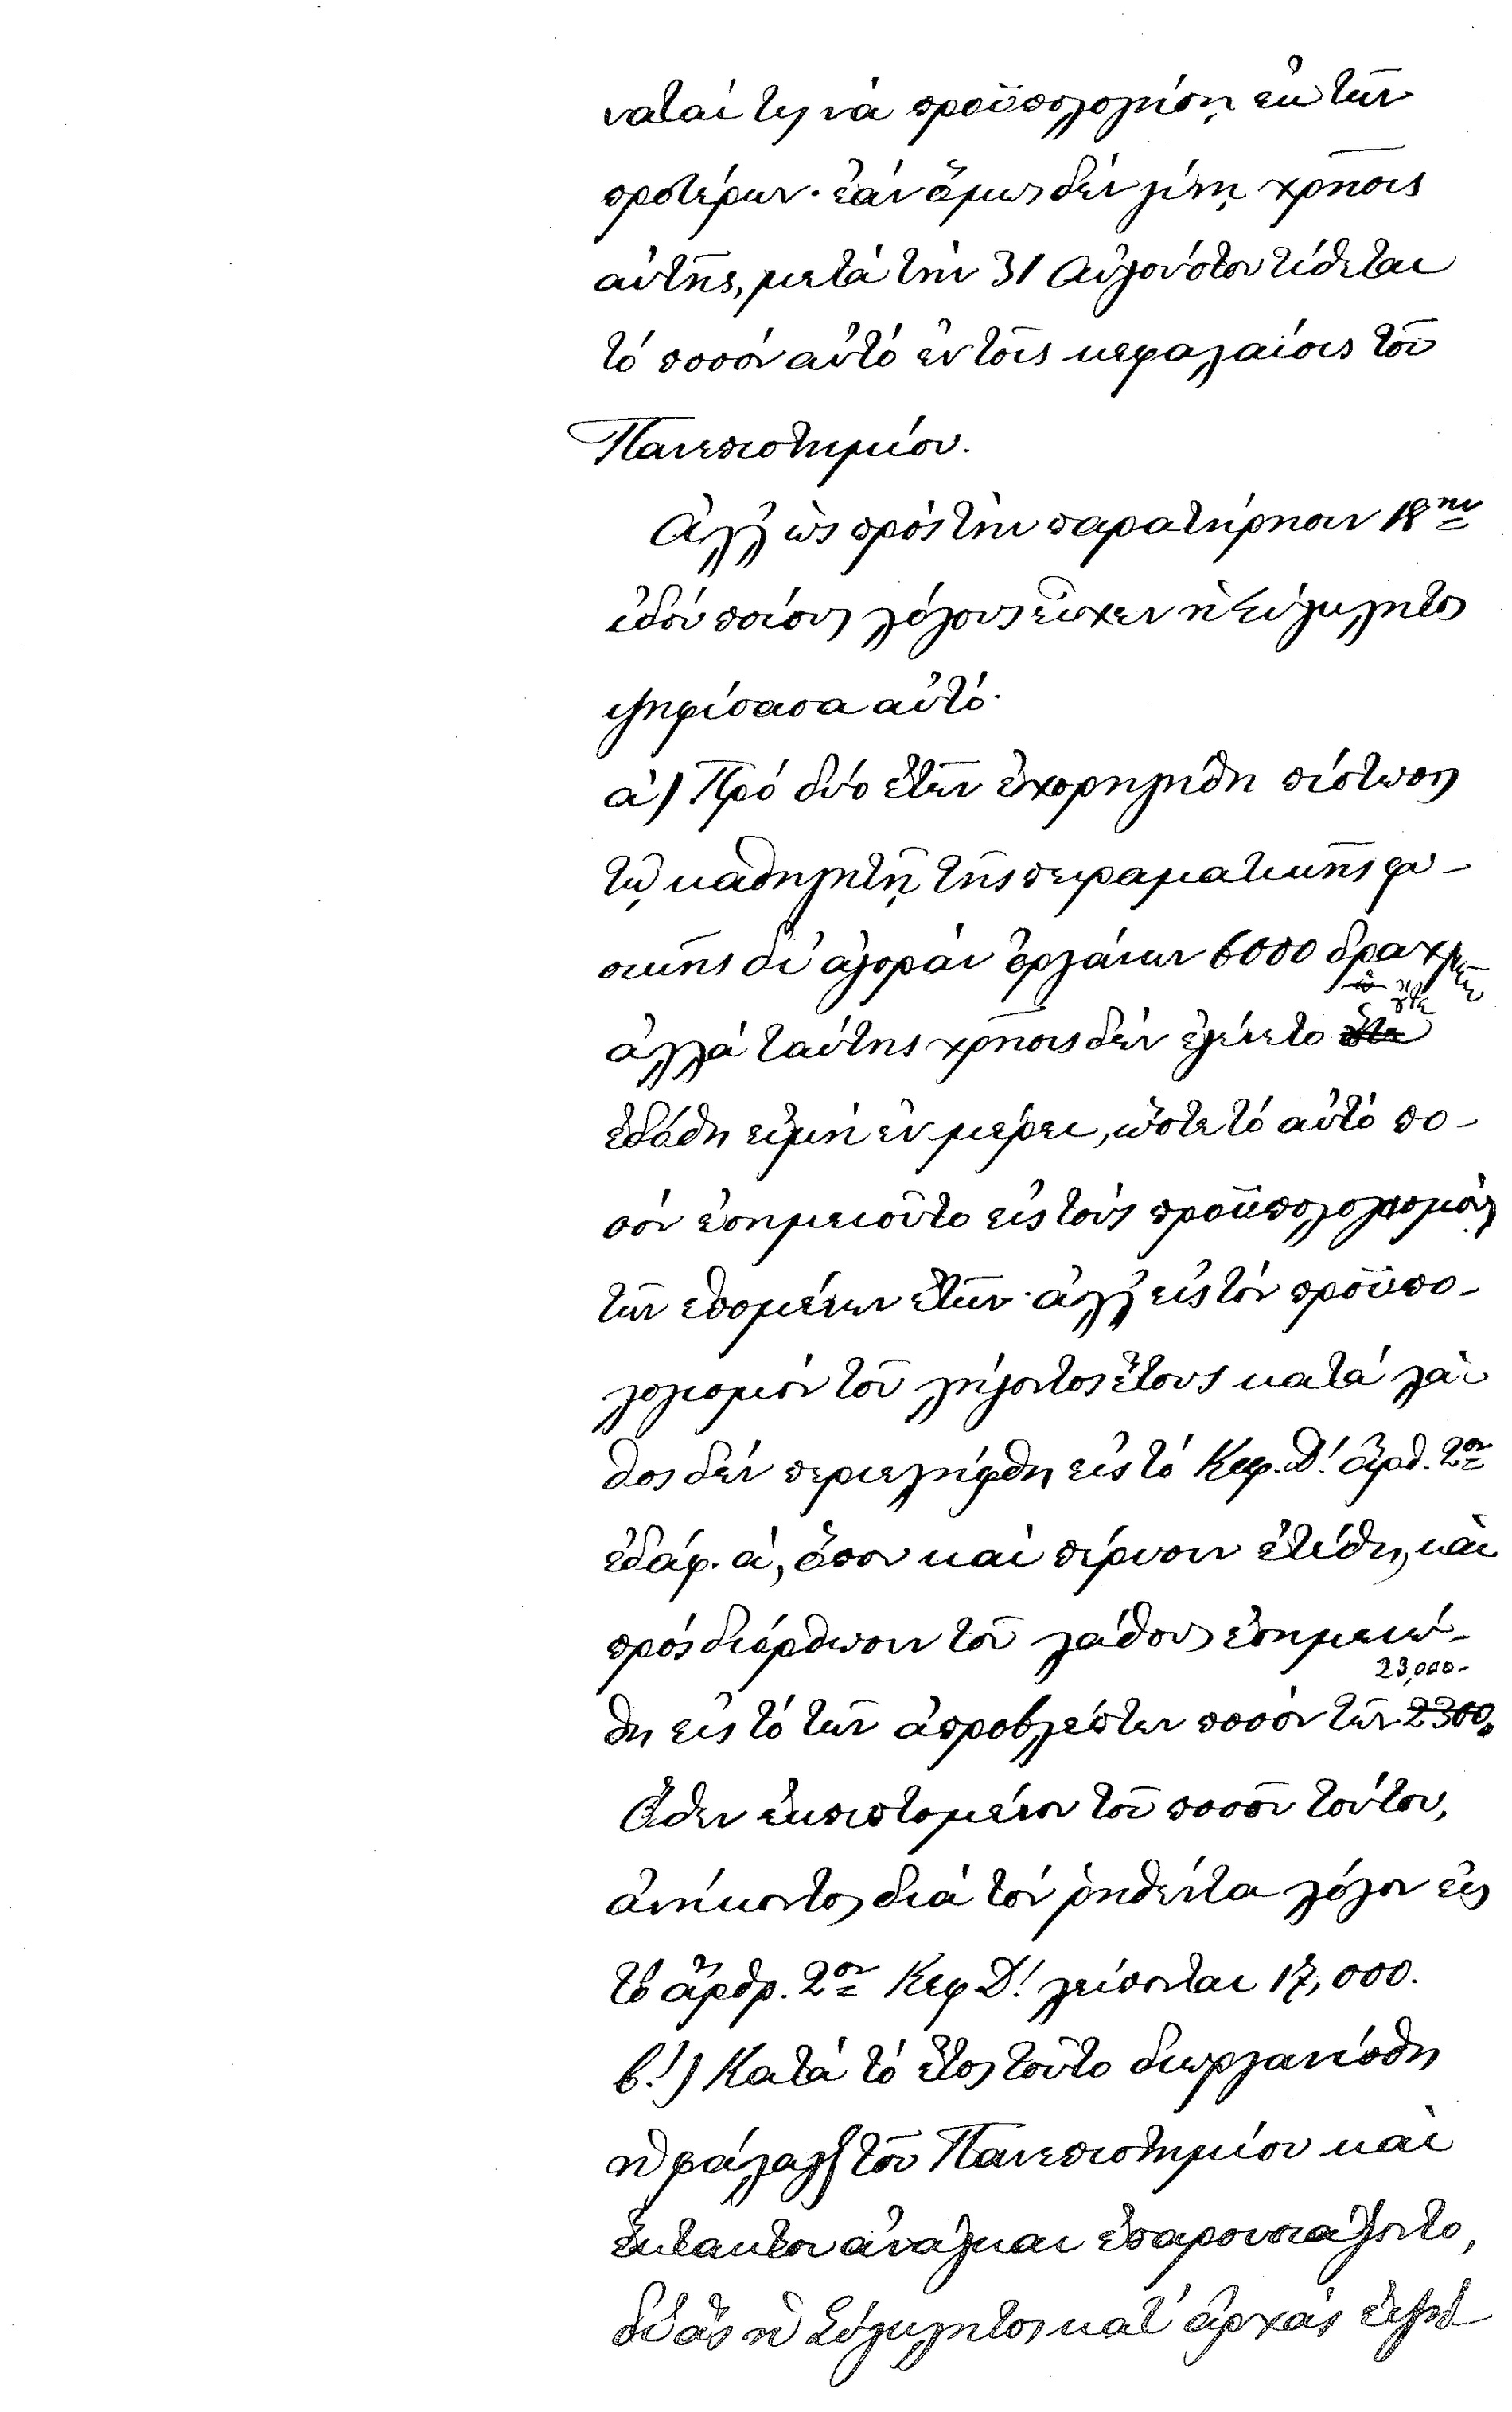 ναταί τις νά προϋπολογίσῃ ἐκ τῶν
προτέρων· ἐάν ὅμως δέν γίνῃ χρῆσις
αὐτῆς, μετά τήν 31 Αὐγούστου τίθεται
τό ποσόν αὐτό ἐν τοῖς κεφαλαίοις τοῦ
Πανεπιστημίου.
Ἀλλ' ὡς πρός τήν παρατήρησιν 18ην
ἰδού ποίους λόγους εἶχεν ἡ Σύγκλητος
ψηφίσασα αὐτό·
α') Πρό δύο ἐτῶν ἐχορηγήθη πίστωσις
τῷ καθηγητῇ τῆς πειραματικῆς φυ-
σικῆς δι' ἀγοράν ὀργάνων 6000 δραχμῶν
ἀλλά ταύτης χρῆσις δέν ἐγένετο οὔτε
ἐδόθη εἰμή ἐν μέρει, ὥστε τό αὐτό πο-
σόν ἐσημειοῦτο εἰς τούς προϋπολογισμούς
τῶν ἑπομένων ἐτῶν· ἀλλ' εἰς τόν προϋπο-
λογισμόν τοῦ λήγοντος ἔτους κατά λά-
θος δέν περιελήφθη εἰς τό Κεφ. Δ'. ἄρθ. 2ον
ἐδάφ. α', ὅπου καί πέρυσιν ἐτέθη, καί
πρός διόρθωσιν τοῦ λάθους ἐσημειώ-
θη εἰς τό τῶν ἀπροβλέπτων ποσόν τῶν 2300. 23,000-
Ὅθεν ἐκπιπτομένου τοῦ ποσοῦ τούτου,
ἀνήκοντος διά τόν ῥηθέντα λόγον εἰς
τό ἄρθρ. 2ον Κεφ Δ'. λείπονται 17,000.
β'.) Κατά τό ἔτος τοῦτο διωργανώθη
ἡ φάλαγξ τοῦ Πανεπιστημίου καί
ἔκτακτοι ἀνάγκαι ἐπαρουσιάζοντο,
δι' ἅς ἡ Σύγκλητος κατ' ἀρχάς ἐψή-